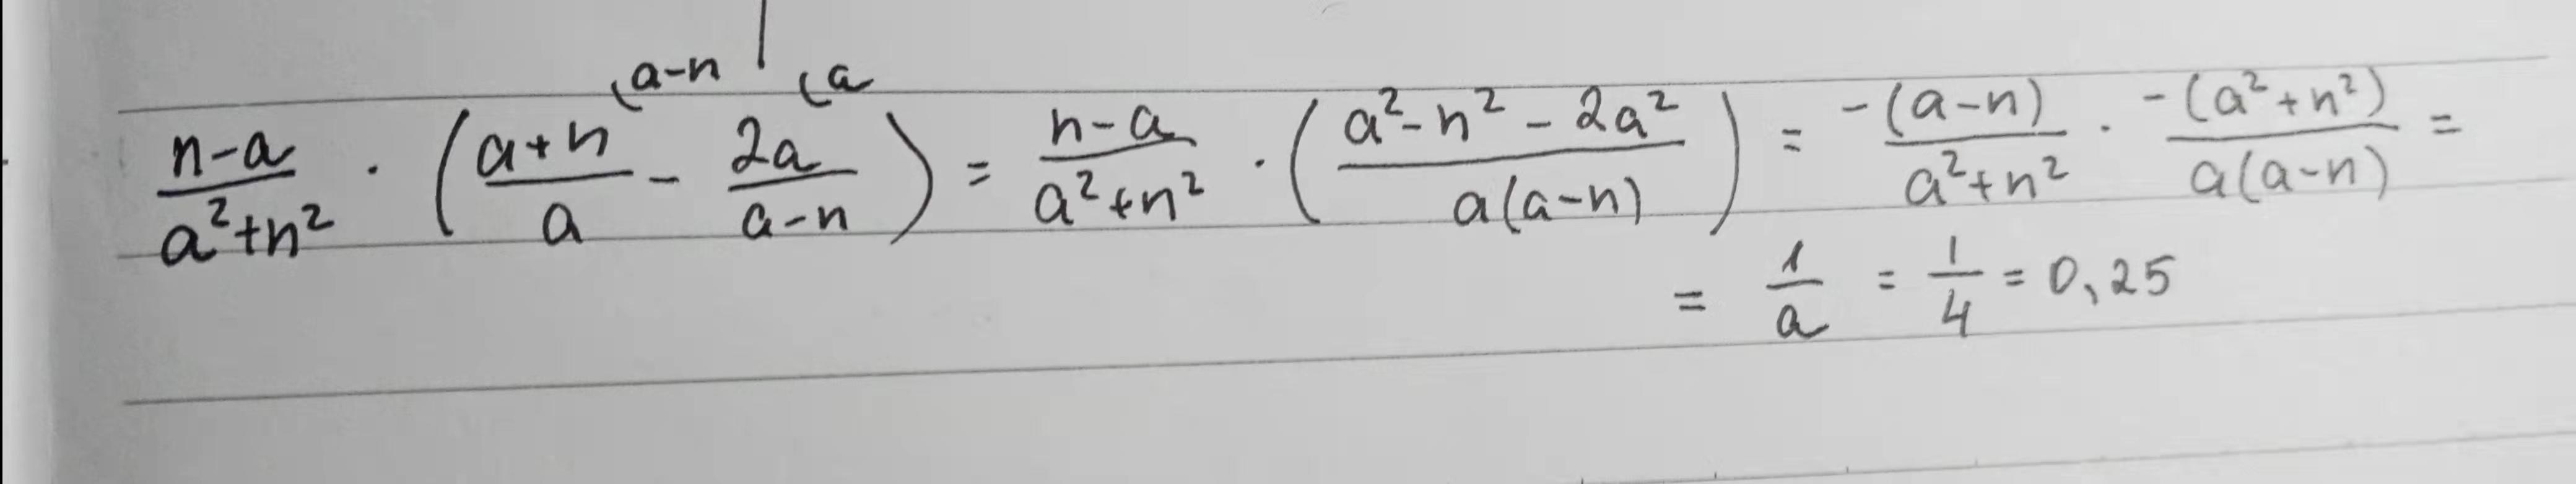 (a-n (a
n-a/a²+n² · (a+n/a - 2a/a-n) = n-a/a²+n² · (a²-n²-2a²/a(a-n)) = -(a-n)/a²+n² · -(a²+n²)/a(a-n) =
= 1/a = 1/4 = 0,25